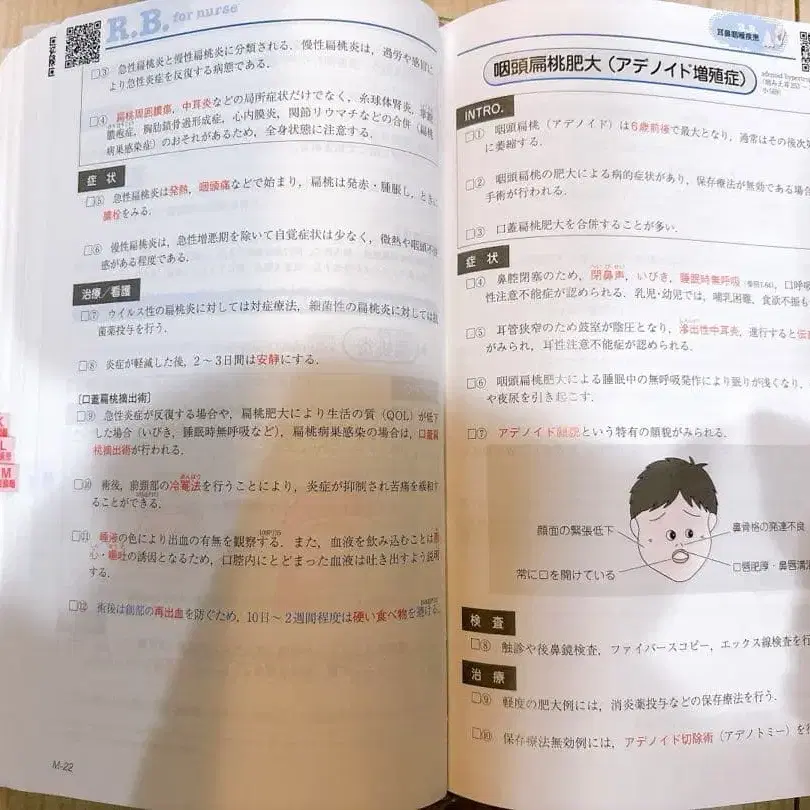 R.B. for nurse
□③ 急性扁桃炎と慢性扁桃炎に分類される．慢性扁桃炎は，過労や感冒に
より急性炎症を反復する病態である．
□④ 扁桃周囲膿瘍，中耳炎などの局所症状だけでなく，糸球体腎炎，掌蹠
膿疱症，胸肋鎖骨過形成症，心内膜炎，関節リウマチなどの合併（扁桃
病巣感染症）のおそれがあるため，全身状態に注意する．
症 状
□⑤ 急性扁桃炎は発熱，咽頭痛などで始まり，扁桃は発赤・腫脹し，ときに
膿栓をみる．
□⑥ 慢性扁桃炎は，急性増悪期を除いて自覚症状は少なく，微熱や咽頭不快
感がある程度である．
治療／看護
□⑦ ウイルス性の扁桃炎に対しては対症療法，細菌性の扁桃炎に対しては抗
菌薬投与を行う．
□⑧ 炎症が軽減した後，2～3日間は安静にする．
［口蓋扁桃摘出術］
□⑨ 急性炎症が反復する場合や，扁桃肥大により生活の質（QOL）が低下
した場合（いびき，睡眠時無呼吸など），扁桃病巣感染の場合は，口蓋扁
桃摘出術が行われる．
□⑩ 術後，前頸部の冷罨法を行うことにより，炎症が抑制され苦痛を緩和す
ることができる．
□⑪ 唾液の色により出血の有無を観察する．また，血液を飲み込むことは悪
心・嘔吐の誘因となるため，口腔内にとどまった血液は吐き出すよう説明
する．
□⑫ 術後は創部の再出血を防ぐため，10日～2週間程度は硬い食べ物を避ける．
M-22
耳鼻咽喉疾患
咽頭扁桃肥大（アデノイド増殖症）
adenoid hypertrop
INTRO.
□① 咽頭扁桃（アデノイド）は6歳前後で最大となり，通常はその後次第
に萎縮する．
□② 咽頭扁桃の肥大による病的症状があり，保存療法が無効である場合
手術が行われる．
□③ 口蓋扁桃肥大を合併することが多い．
症 状
□④ 鼻腔閉塞のため，閉鼻声，いびき，睡眠時無呼吸，口呼吸
性注意不能症が認められる．乳児・幼児では，哺乳困難，食欲不振も
□⑤ 耳管狭窄のため鼓室が陰圧となり，滲出性中耳炎，進行すると伝音
がみられ，耳性注意不能症が認められる．
□⑥ 咽頭扁桃肥大による睡眠中の無呼吸発作により眠りが浅くなり，
や夜尿を引き起こす．
□⑦ アデノイド顔貌という特有の顔貌がみられる．
顔面の緊張低下
鼻骨格の発達不良
常に口を開けている
口唇肥厚・鼻唇溝消
検 査
□⑧ 触診や後鼻鏡検査，ファイバースコピー，エックス線検査を行
治 療
□⑨ 軽度の肥大例には，消炎薬投与などの保存療法を行う．
□⑩ 保存療法無効例には，アデノイド切除術（アデノトミー）を行